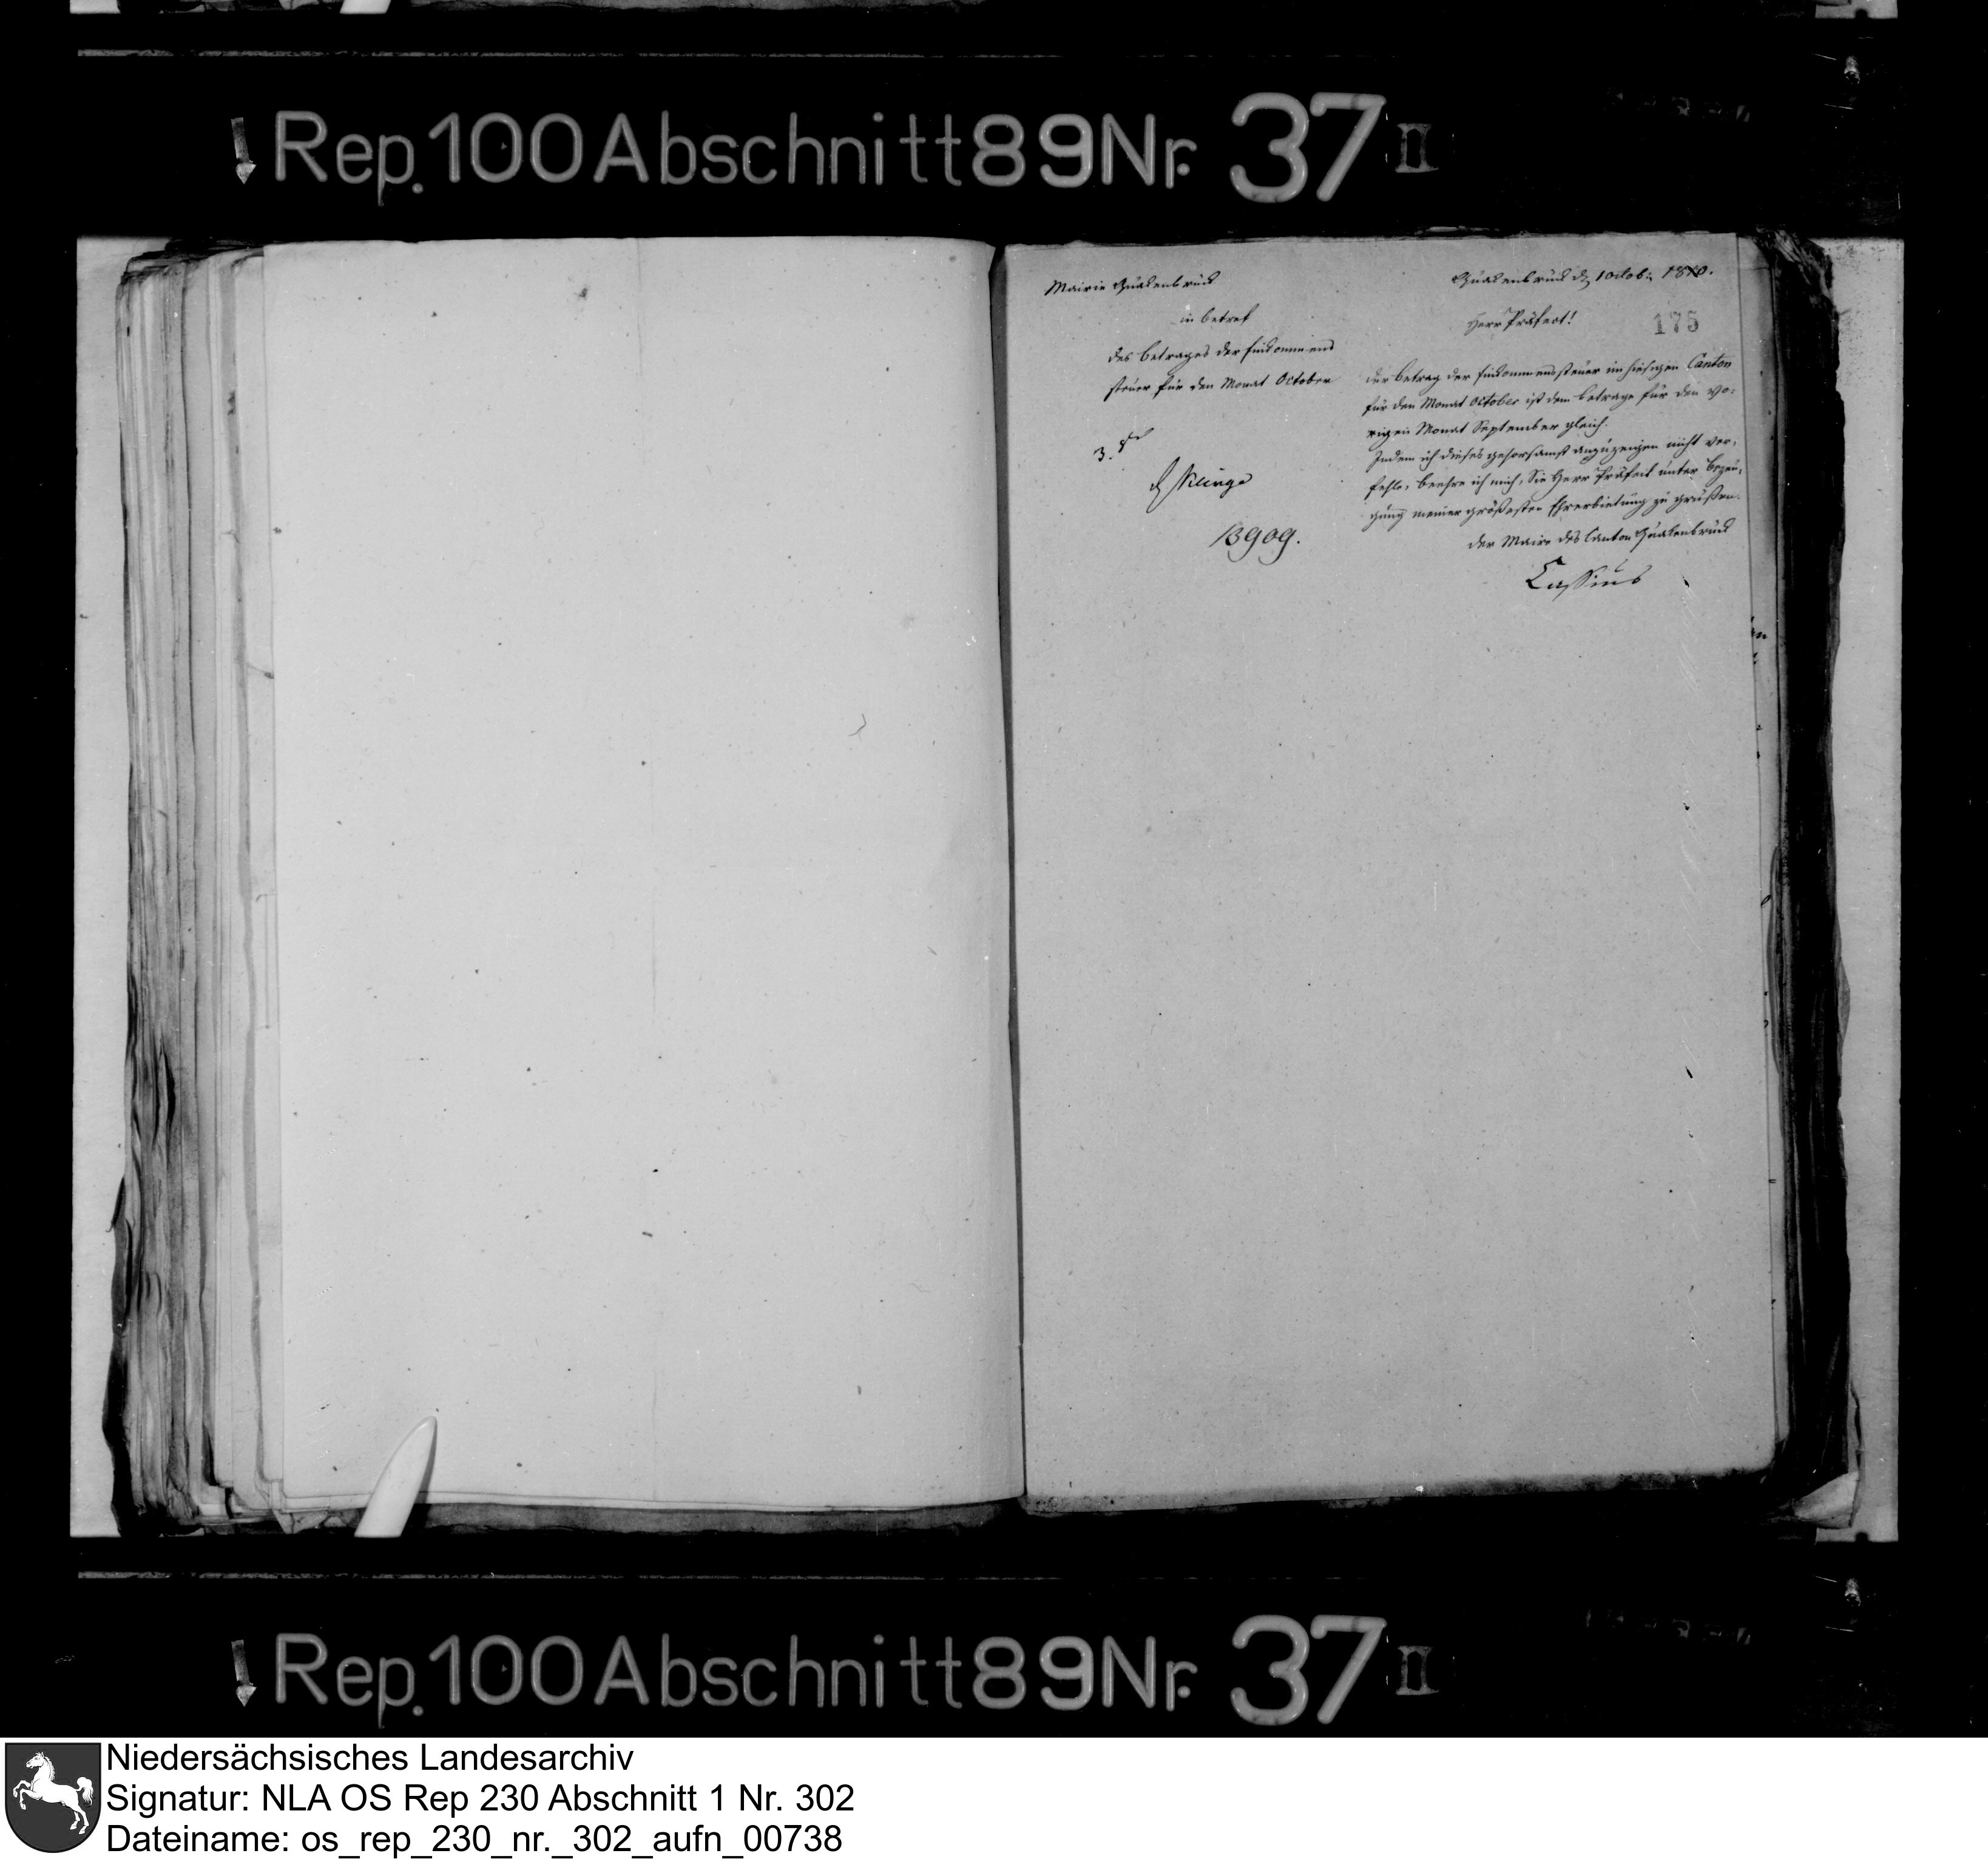 Rep. 100 Abschnitt 89 Nr. 37 II
Mairie Quakenbrück
in betref
des betrages der Einkommens
steuer für den Monat October
Klinge
13909.
Quakenbrück d 1 Octob: 1810.
Herr Präfect!
175
der betrag der Einkommensteuer im hiesigen Canton
für den Monat October ist dem betrage für den vo-
rigen Monat September gleich.
Indem ich dieses gehorsamst anzuzeigen nicht ver-
fehle, beehre ich mich, Sie Herr Präfect unter bezeu-
gung meiner größesten Ehrerbietung zu grüßen.
der Maire des Canton Quakenbrück
Cassius
Rep. 100 Abschnitt 89 Nr. 37 II
Niedersächsisches Landesarchiv
Signatur: NLA OS Rep 230 Abschnitt 1 Nr. 302
Dateiname: os_rep_230_nr._302_aufn_00738